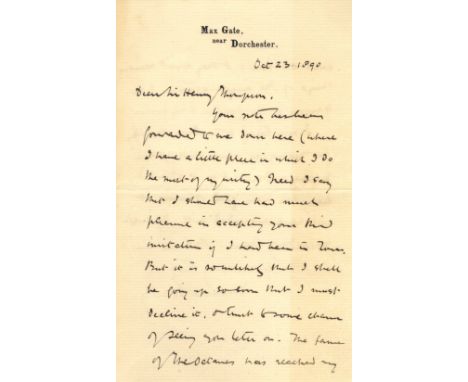 Max Gate,
near Dorchester.
Oct 23 1890
Dear Sir Henry Thompson,
Your note has been
forwarded to me down here (where
I have a little place in which I do
the most of my writing) Need I say
that I should have had much
pleasure in accepting your kind
invitation if I had been in Town.
But it is so unlikely that I shall
be going up so soon that I must
decline it, & trust to some chance
of seeing you later on. The fame
of the Octaves has reached my